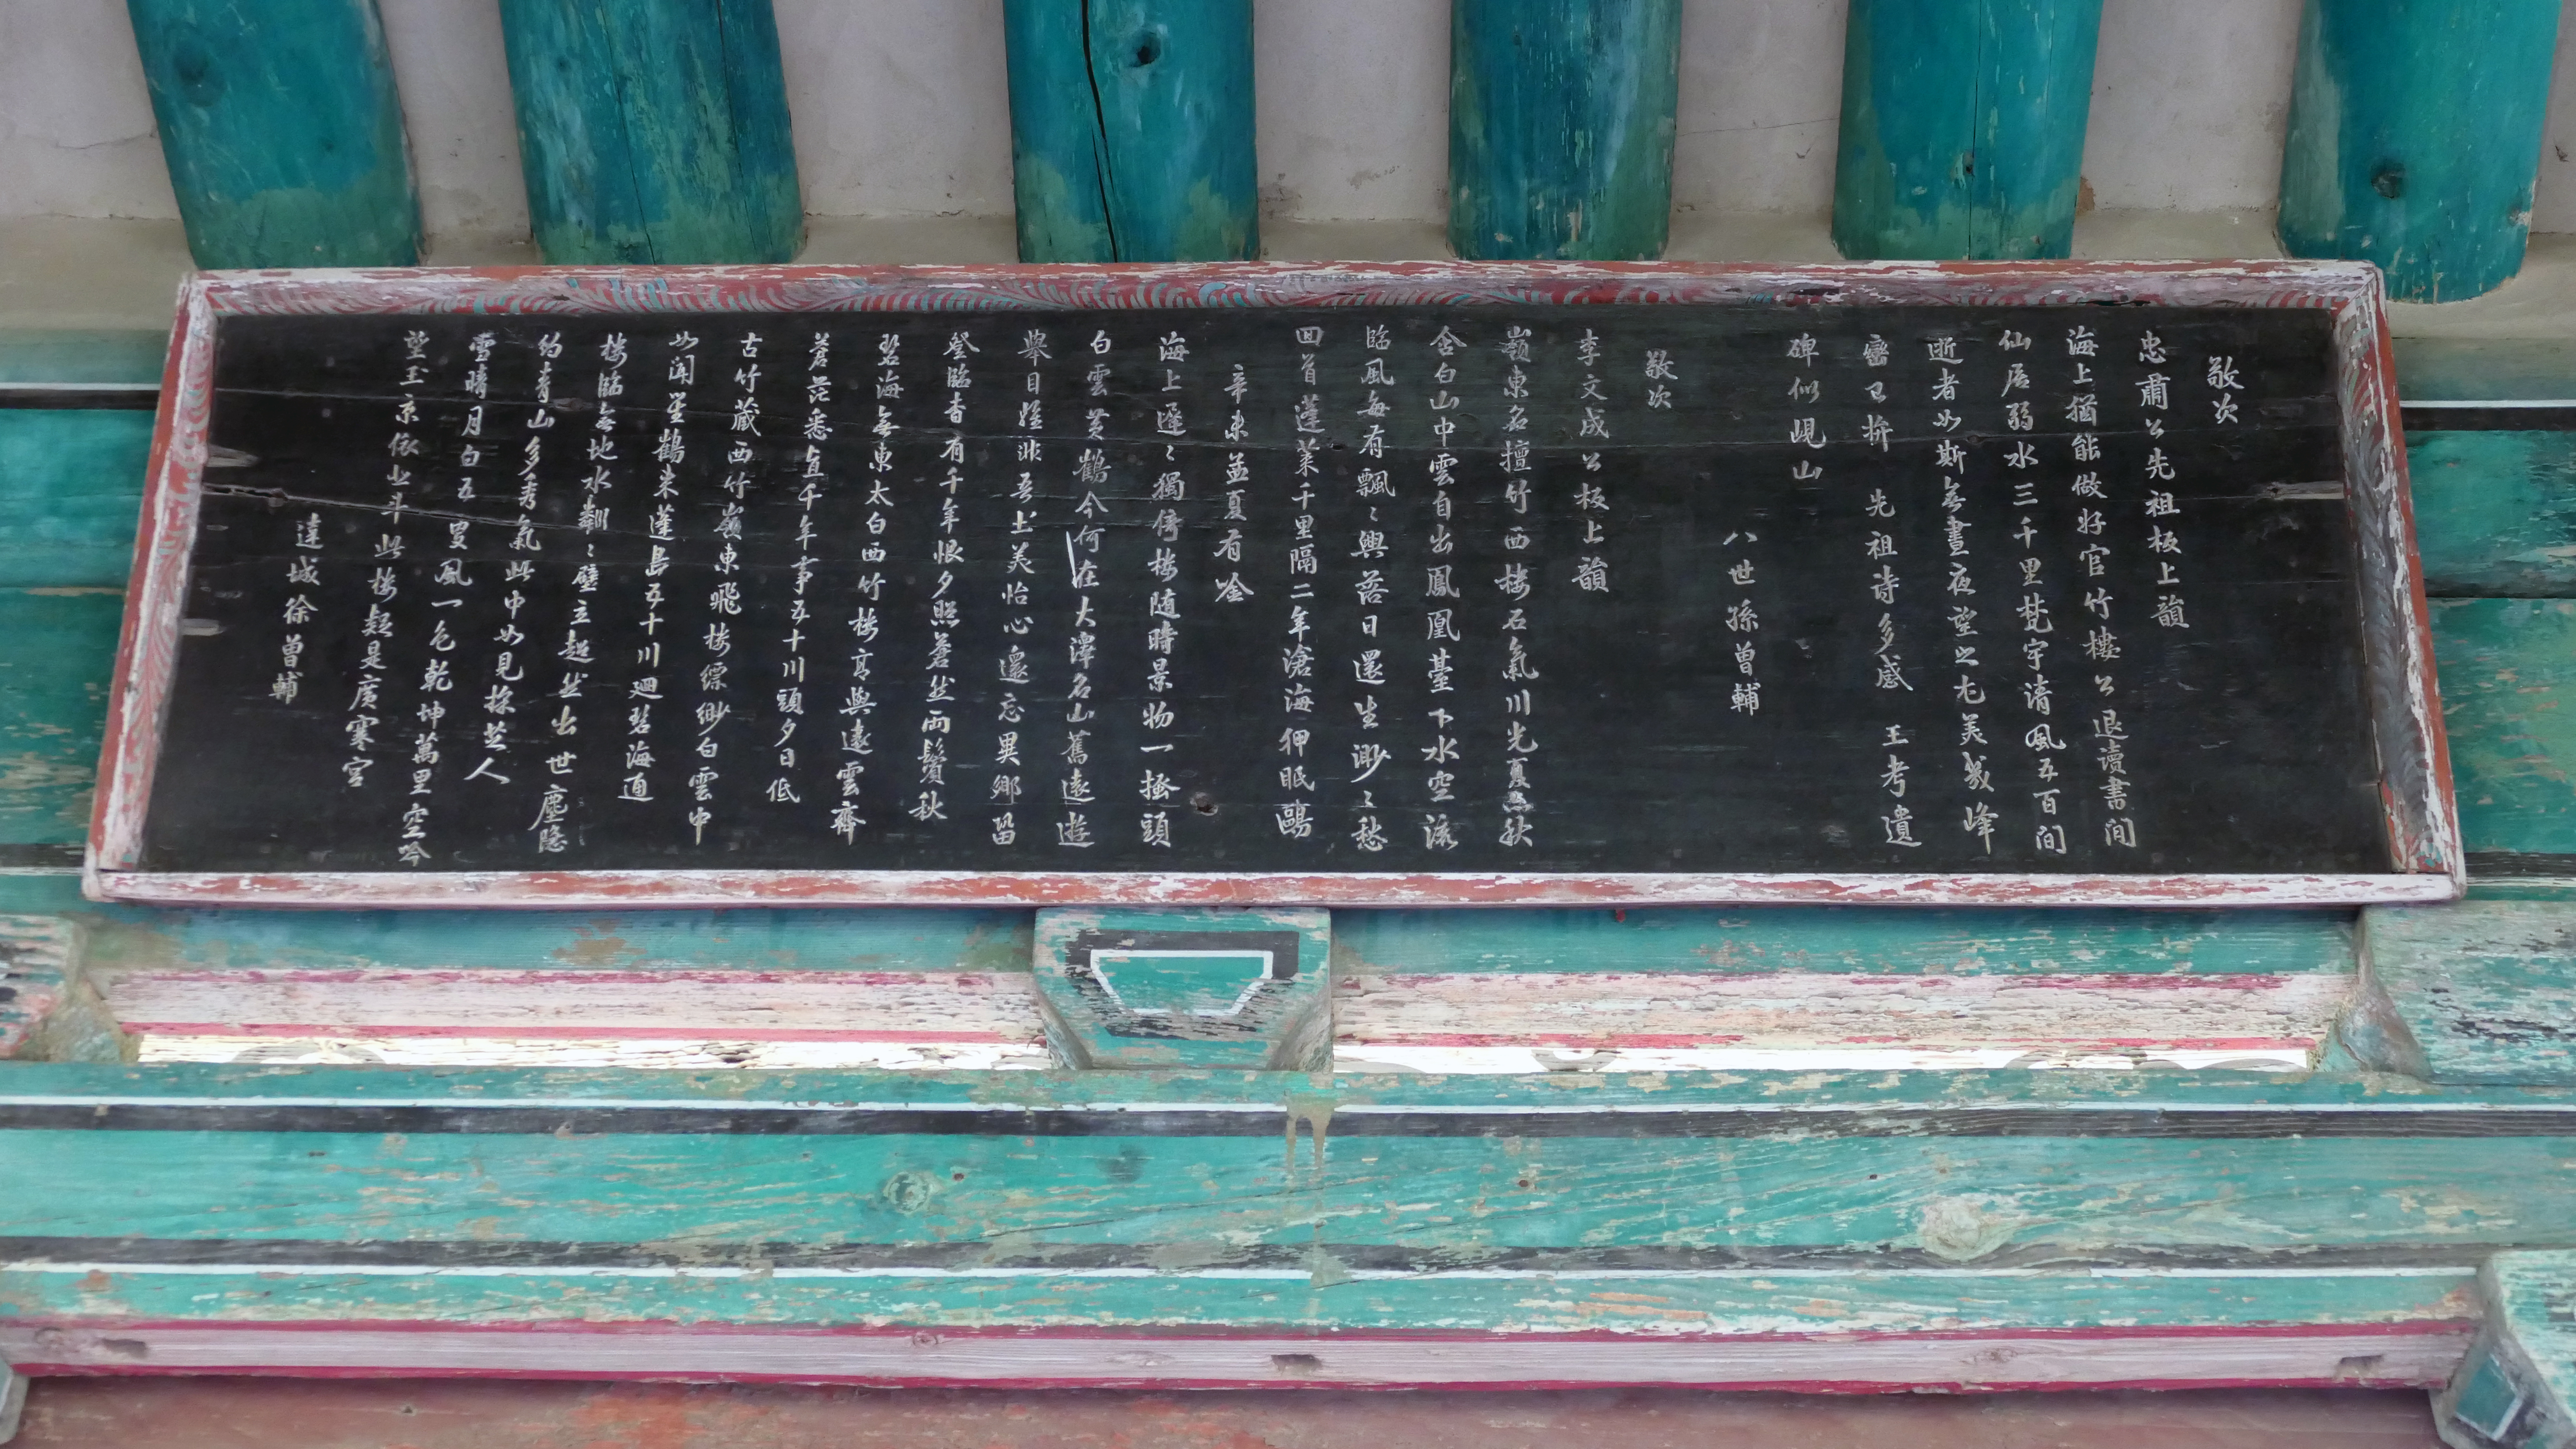 敬次
忠肅公先祖板上韻
海上猶能做好官竹樓公退讀書間
仙居弱水三千里梵宇清風五百間
逝者如斯無晝夜望之尤美幾峰
巒口拚 先祖詩多感 王考遺
碑似峴山
八世孫曾輔
敬次
李文成公板上韻
嶺東名擅竹西樓石氣川光夏亦秋
含白山中雲自出鳳凰臺下水空流
臨風每有飄〻興落日還生渺〻愁
回首蓬萊千里隔二年滄海狎眠鷗
辛未孟夏有唫
海上遲〻獨倚楼随時景物一搔頭
白雲黃鶴今何在大澤名山舊遠遊
舉目縱非吾土美怡心還忘異鄉留
登臨杳有千年恨夕照蒼然兩鬢秋
碧海無東太白西竹楼高與遠雲齊
蒼茫悉直千年事五十川頭夕日低
古竹藏西竹嶺東飛楼縹緲白雲中
如聞笙鶴來蓬島五十川迴碧海通
楼臨無地水粼〻壁立超然出世塵隱
約青山多秀氣此中如見採芝人
雪晴月白五更風一色乾坤萬里空吟
望玉京依北斗此楼疑是廣寒宮
達城徐曾輔